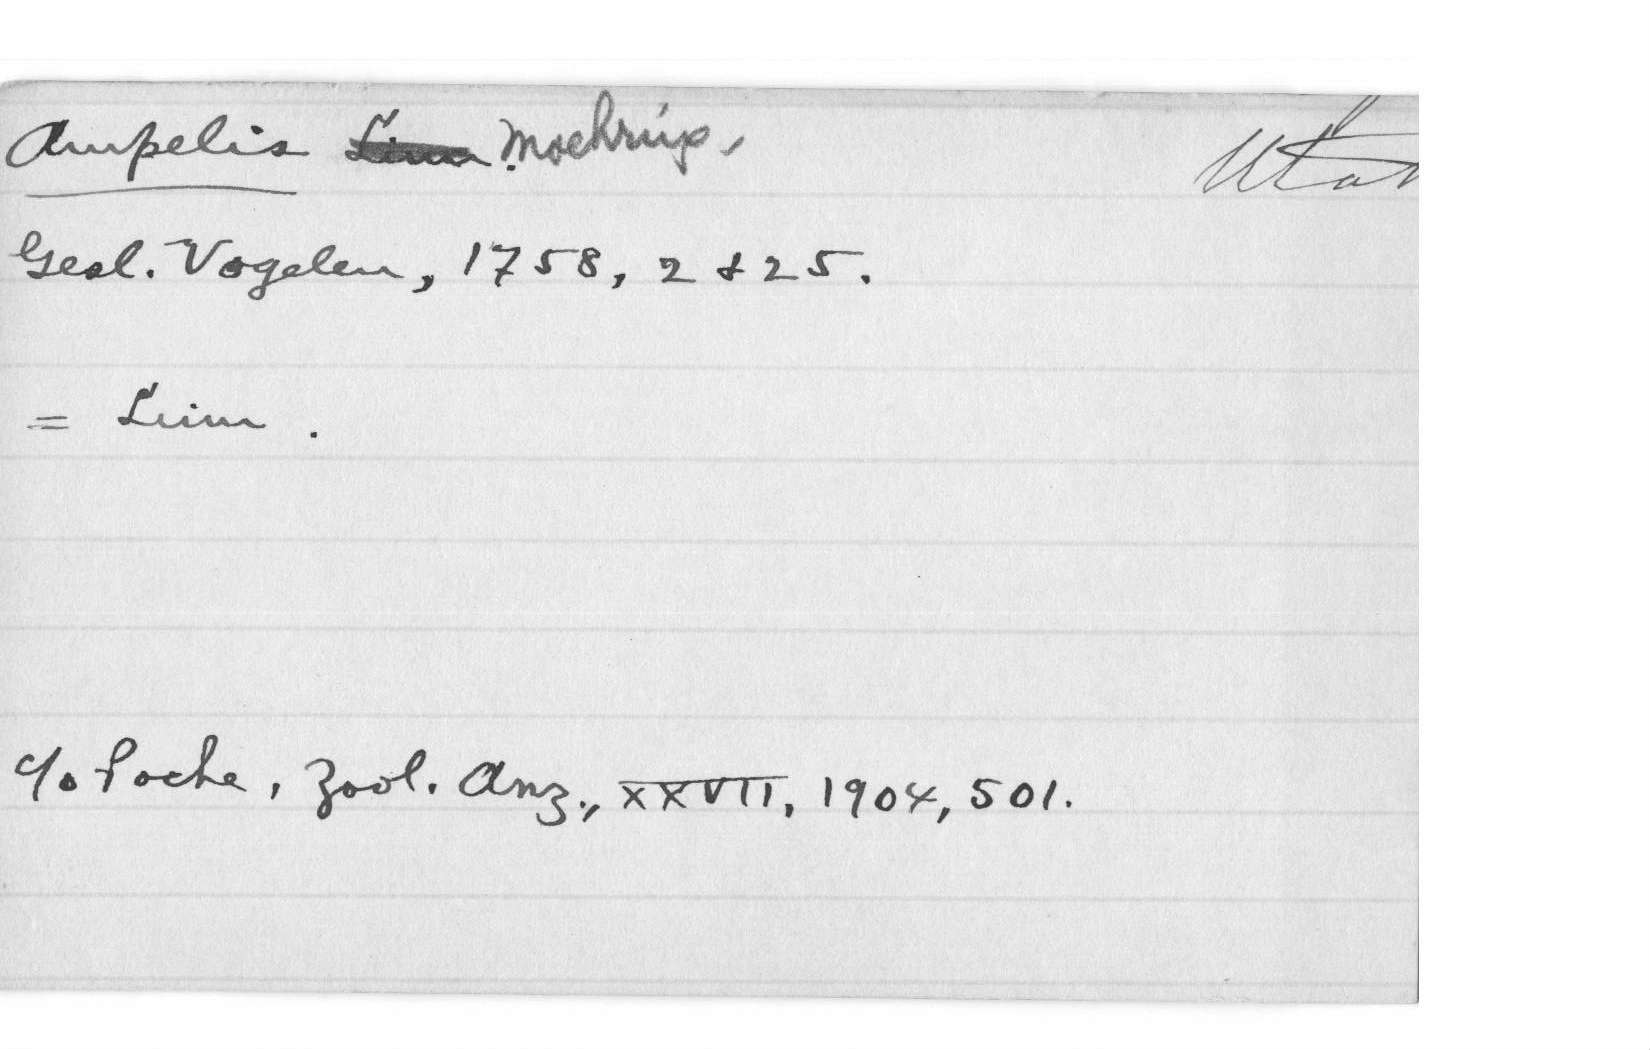 Ampelis Linn. Moehring.
Gesl. Vogelen, 1758, 2 & 25.
= Linn.
c/o Poche, Zool. Anz., XXVII, 1904, 501.